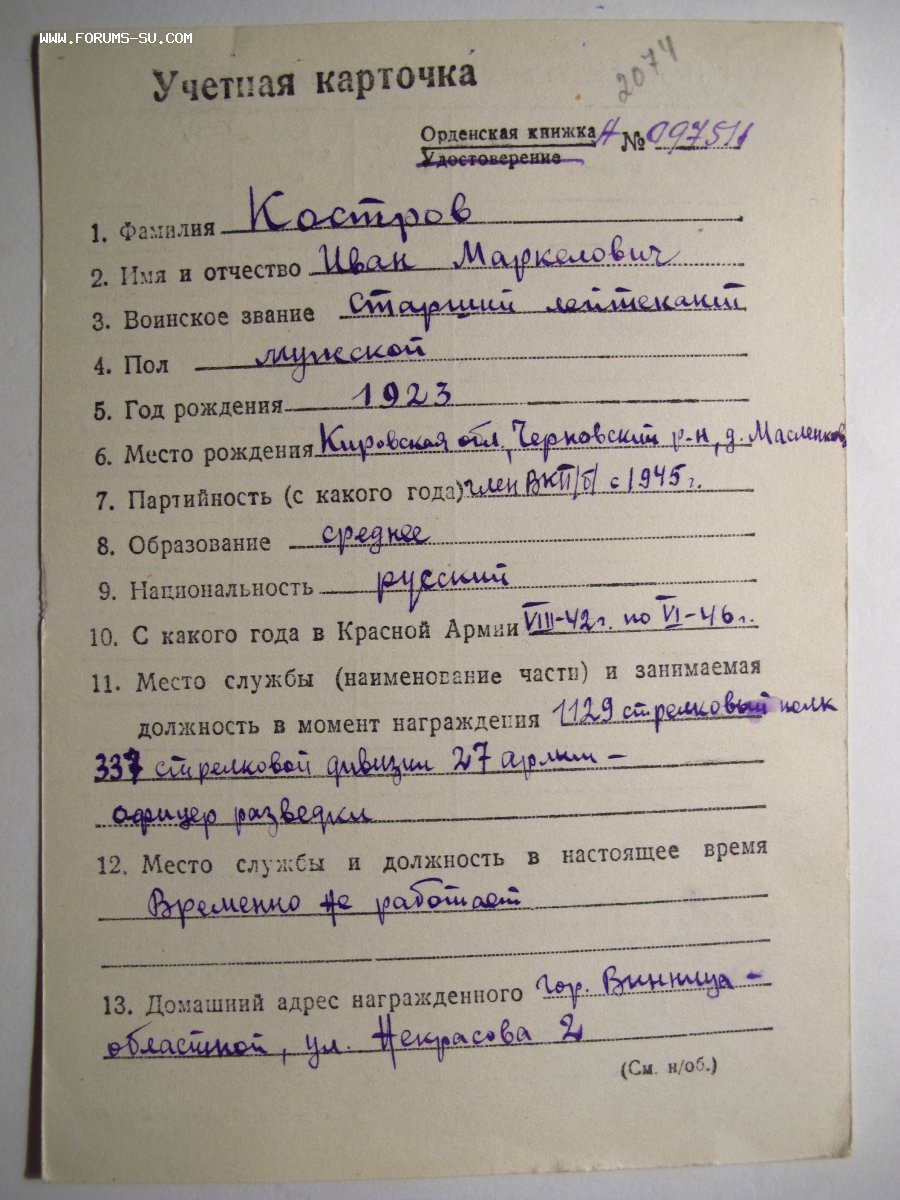 www.forums-su.com
2074
Учетная карточка
Орденская книжка А № 097511
Удостоверение
1. Фамилия Костров
2. Имя и отчество Иван Маркелович
3. Воинское звание Старший лейтенант
4. Пол мужской
5. Год рождения 1923
6. Место рождения Кировская обл, Черновский р-н, д. Масленков
7. Партийность (с какого года) член ВКП/б/ с 1945 г.
8. Образование среднее
9. Национальность русский
10. С какого года в Красной Армии VIII-42 г. по VI-46 г.
11. Место службы (наименование части) и занимаемая
должность в момент награждения 1129 стрелковый полк
337 стрелковой дивизии 27 армии –
офицер разведки
12. Место службы и должность в настоящее время
Временно не работает
13. Домашний адрес награжденного гор. Винница –
областной, ул. Некрасова 2
(См. н/об.)